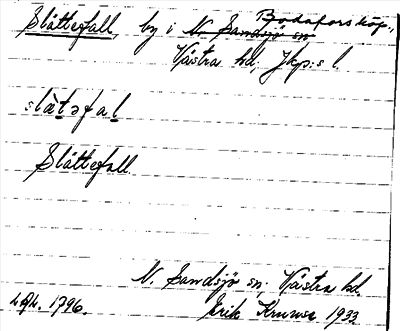 Slättefall, by i N. Sandsjö sn Bodafors köp.,
Västra hd, Jkp:s l.
slätəfal
Slättefall.
N. Sandsjö sn, Västra hd.
1796. Erik Kruuse 1933.